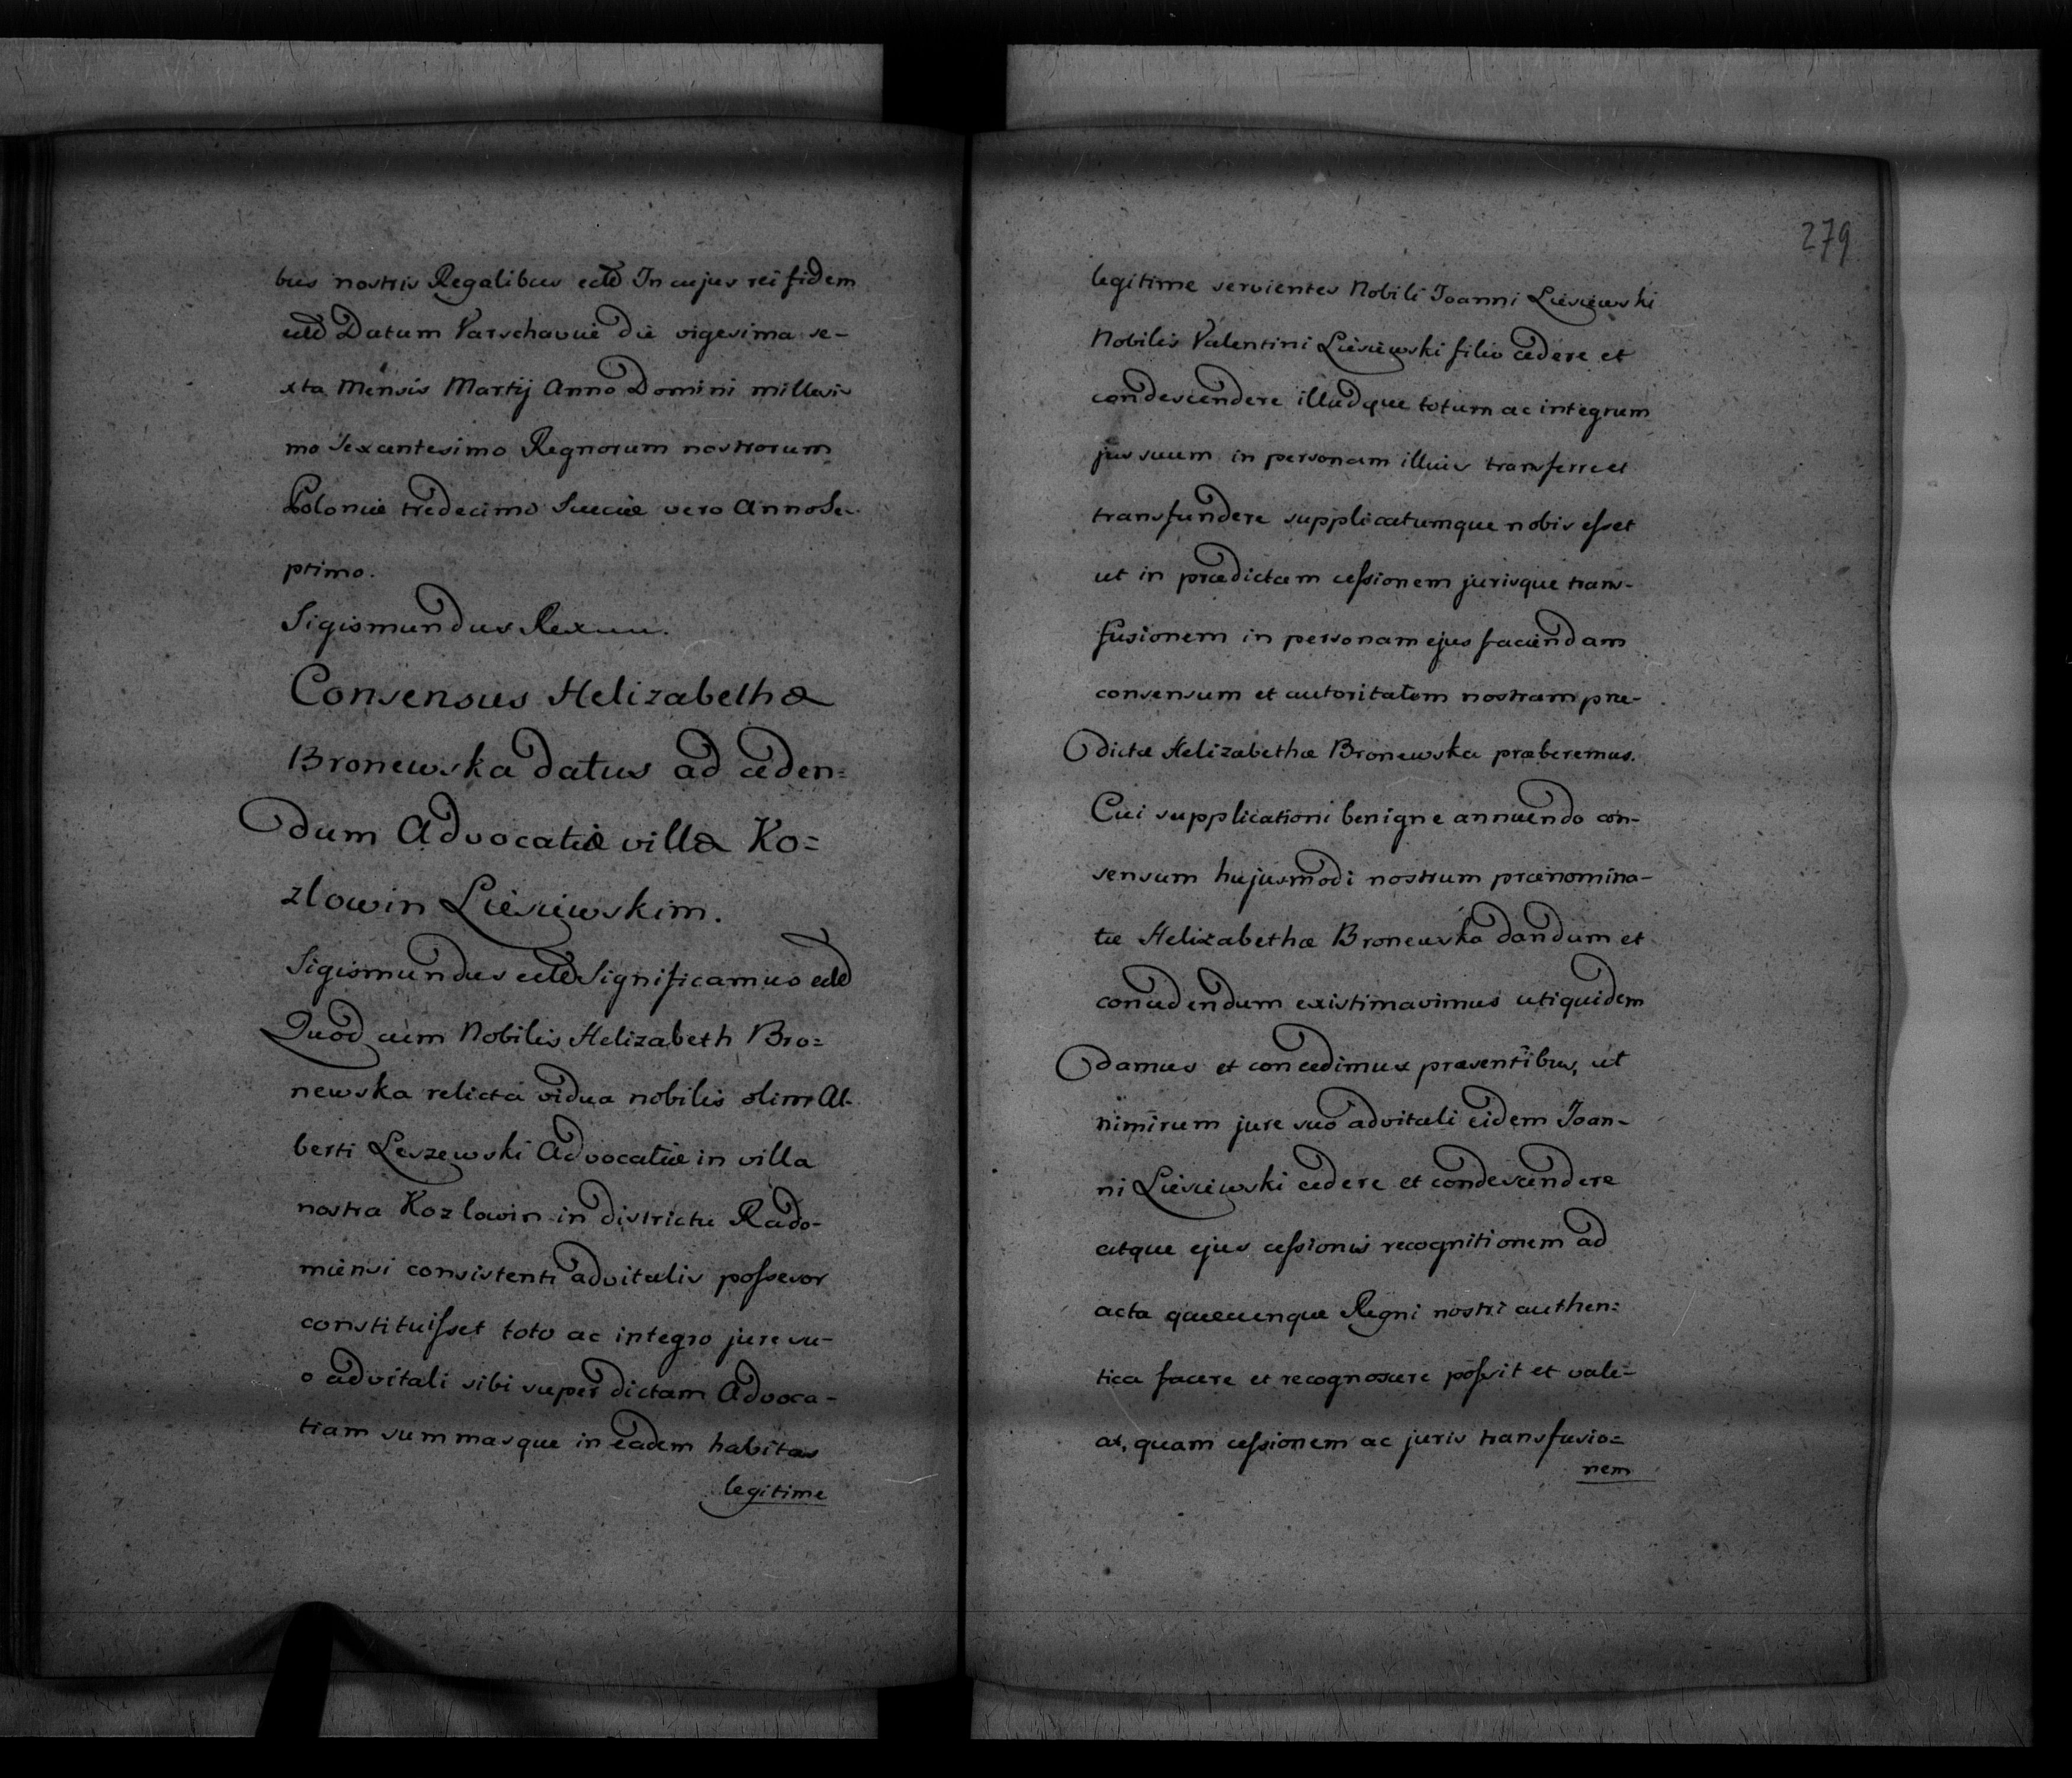 bus nostris Regalibus etc In cujus rei fidem
etc Datum Varschaviæ die vigesima se-
xta Mensis Martij Anno Domini millesi
mo Sexcentesimo Regnorum nostrorum
Poloniæ tredecimo Sueciæ vero Anno Se-
ptimo.
Sigismundus Rex
Consensus Helizabethæ
Bronewska datus ad ceden=
dum Advocatiæ villæ Ko=
zlowin Liesiewskim.
Sigismundus etc Significamus etc
Quod cum Nobilis Helizabeth Bro=
newska relicta vidua nobilis olim Al-
berti Leszewski Advocatiæ in villa
nostra Kozlowin in districtu Rado-
miensi consistenti advitalis possesor
constituisset toto ac integro jure su-
o advitali sibi super dictam Advoca-
tiam summasque in eadem habitas
legitime
279
legitime servientes Nobili Joanni Liesiewski
Nobilis Valentini Liesiewski filio cedere et
condescendere illudque totum ac integrum
jus suum in personam illius transferre et
transfundere supplicatumque nobis esset
ut in prædictam cessionem jurisque trans-
fusionem in personam ejus faciendam
consensum et autoritatem nostram præ-
dictæ Helizabethæ Bronewska præberemus.
Cui supplicationi benigne annuendo con-
sensum hujusmodi nostrum prænomina-
tæ Helizabethæ Bronewska dandum et
concedendum existimavimus utiquidem
damus et concedimus præsentibus, ut
nimirum jure suo advitali eidem Joan-
ni Liesiewski cedere et condescendere
atque ejus cessionis recognitionem ad
acta quæcunque Regni nostri authen=
tica facere et recognoscere possit et vale-
at, quam cessionem ac juris transfusio=
nem